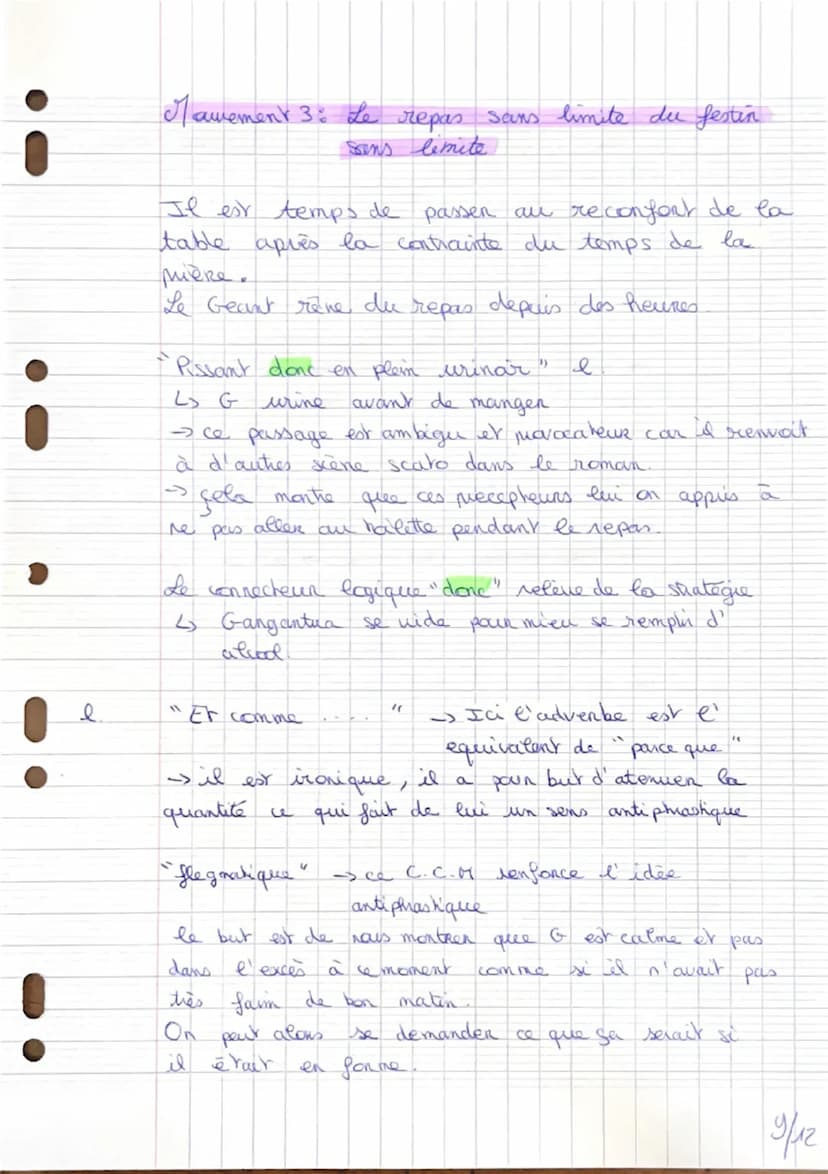 Mouvement 3 : Le repas sans limite du festin
sans limite
Il est temps de passer au reconfort de la
table après la contrainte du temps de la
prière.
Le Geant rêne du repas depuis des heures
"Pissant donc en plein urinoir" l.
↳ G urine avant de manger
→ ce passage est ambigu et provocateur car il renvoit
à d'autres scène scato dans le roman.
→ çela montre que ces precepteurs lui on appris à
ne pas aller au toilette pendant le repas.
Le connecteur logique "donc" relève de la stratégie
↳ Gargantua se vide pour mieu se remplir d'
alcool.
l. "Et comme .... " → Ici l'adverbe est l'
equivalent de "parce que"
→ il est ironique, il a pour but d'atenuer la
quantité ce qui fait de lui un sens antiphrastique
"flegmatique" → ce C.C.M renforce l'idée
antiphrastique
le but est de nous montrer que G est calme et pas
dans l'excès à ce moment comme si il n'avait pas
très faim de bon matin.
On peut alors se demander ce que ça serait si
il était en forme.
9/12